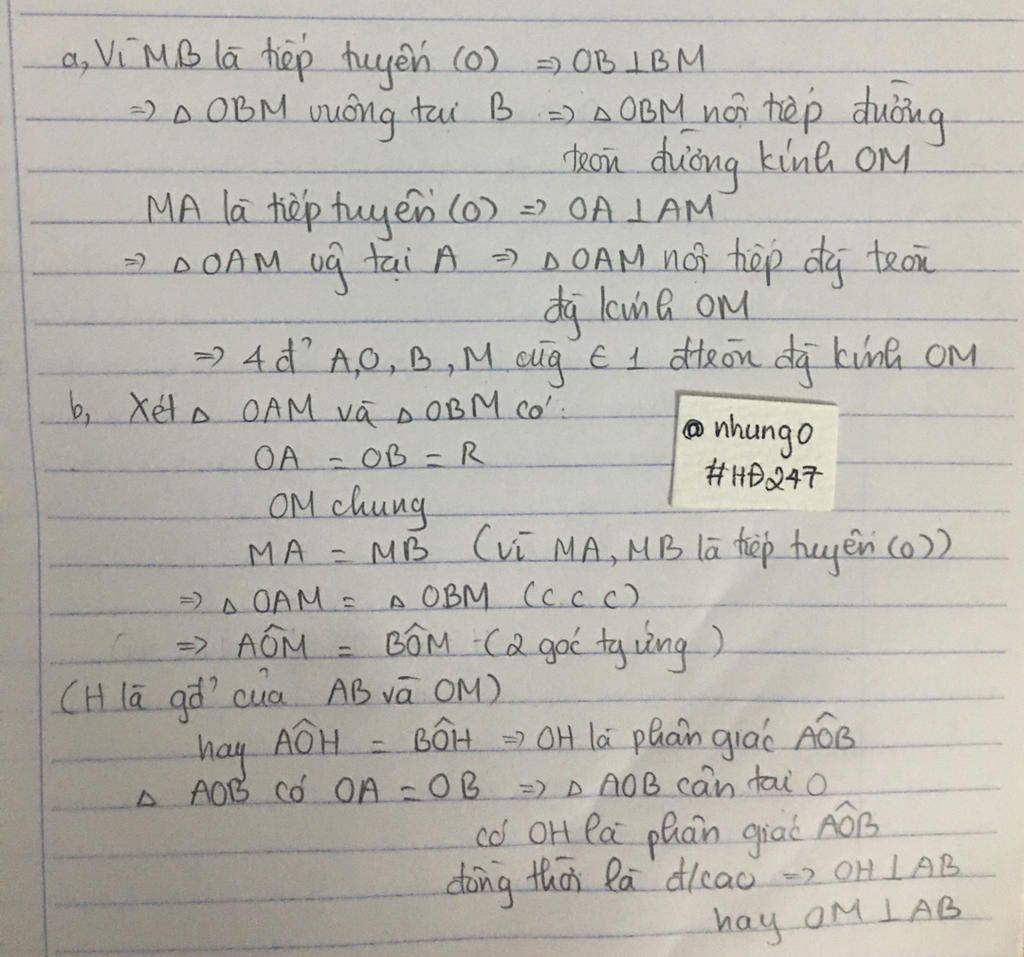 a, Vì MB là tiếp tuyến (O) => OB⊥BM
=> △ OBM vuông tại B => △OBM nội tiếp đường
tròn đường kính OM
MA là tiếp tuyến (O) => OA⊥AM
=> △OAM vg̃ tại A => △OAM nội tiếp đg̃ tròn
đg̃ kính OM
=> 4 đ' A,O,B,M cùg ∈ 1 đtròn đg̃ kính OM
b, Xét △ OAM và △OBM có:
@nhung0
#HĐ247
OA = OB = R
OM chung
MA = MB (vì MA, MB là tiếp tuyến (O))
=> △OAM = △OBM (c c c)
=> AÔM = BÔM (2 góc tg ứng)
(H là gđ' của AB và OM)
hay AÔH = BÔH => OH là phân giác AÔB
△ AOB có OA = OB => △ AOB cân tại O
có OH là phân giác AÔB
đồng thời là đ/cao => OH⊥AB
hay OM⊥AB